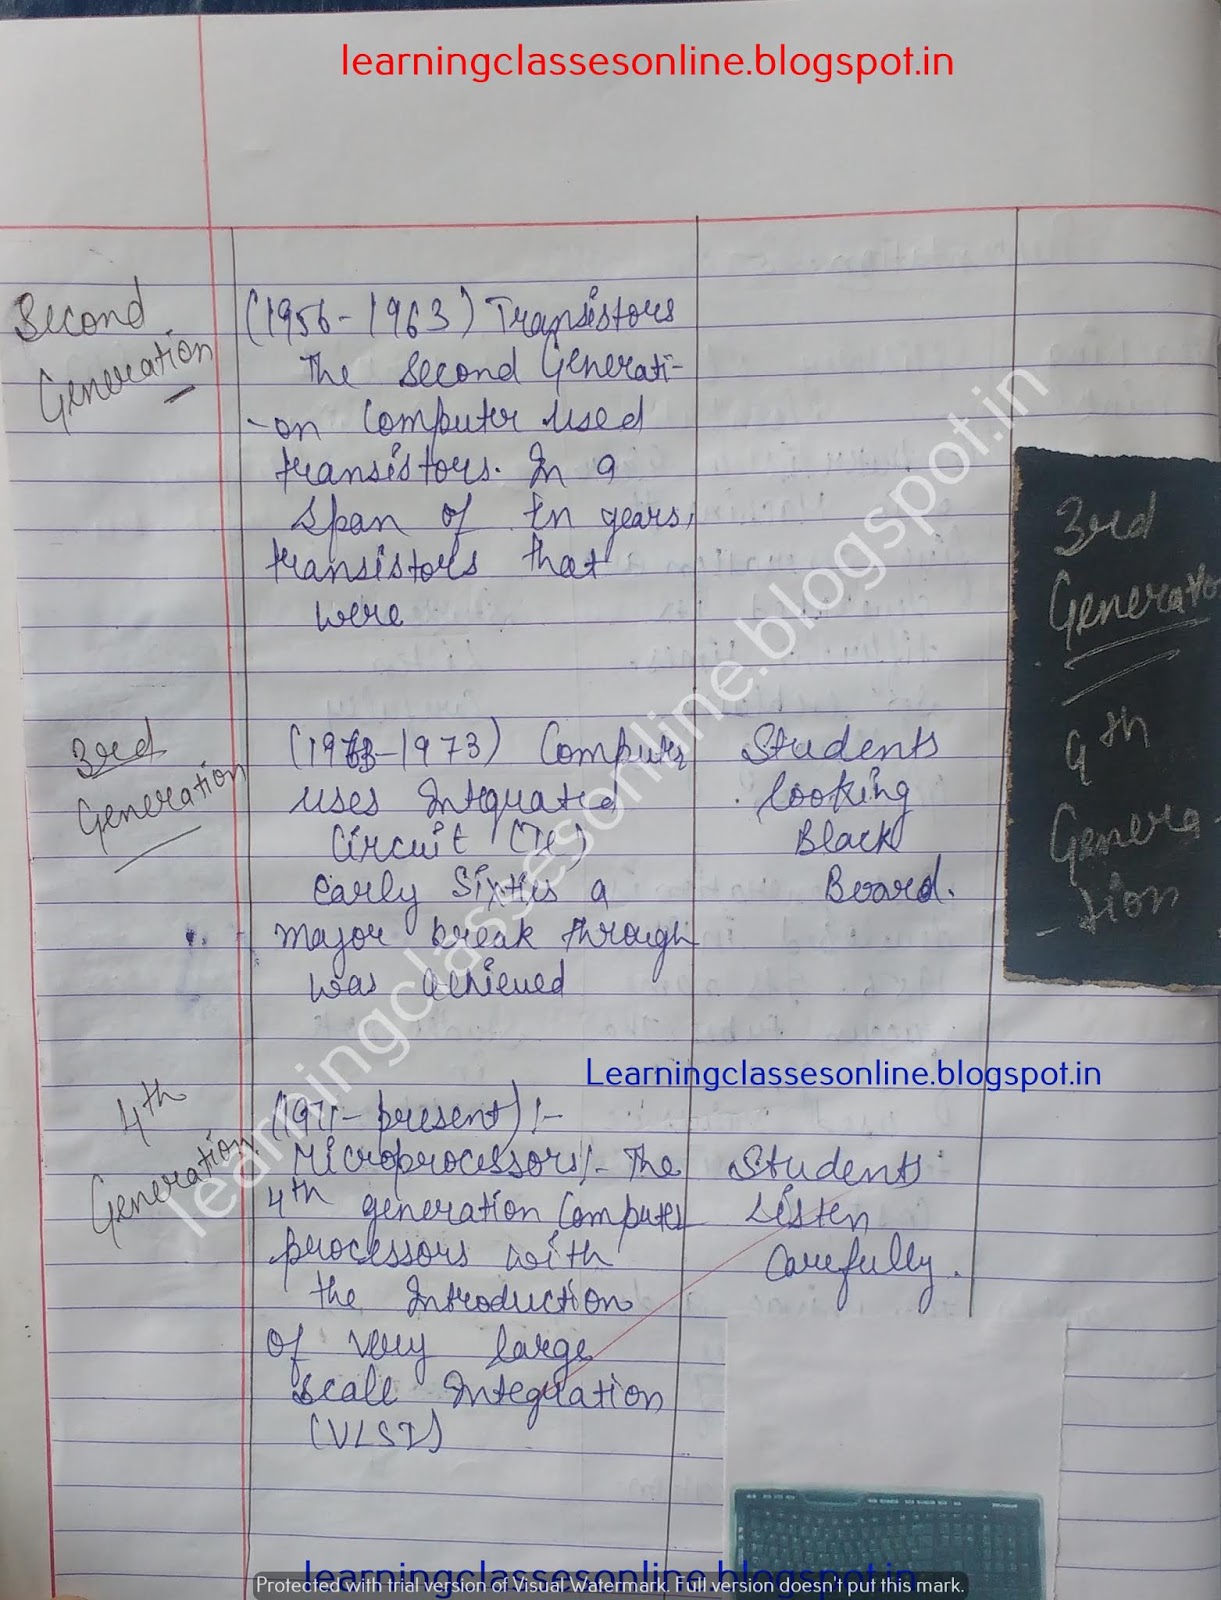 learningclassesonline.blogspot.in
Second
Generation
(1956-1963) Transistors
The second Generati-
-on computer used
transistors. In a
span of tn years,
transistors that
were
3rd
Generation
4th
Genera-
-tion
3rd
Generation
(1963-1973) Computer
uses Integrated
Circuit (IC)
early sixties a
major break through
was achieved
Students
looking
Black
Board.
Learningclassesonline.blogspot.in
4th
Generation
(1971-present):-
Microprocessors:- The
4th generation Computer
processors with
the Introduction
of very large
scale Integration
(VLSI)
Students
Listen
carefully.
learningclassesonline.blogspot.in
learningclassesonline.blogspot.in
Protected with trial version of Visual Watermark. Full version doesn't put this mark.